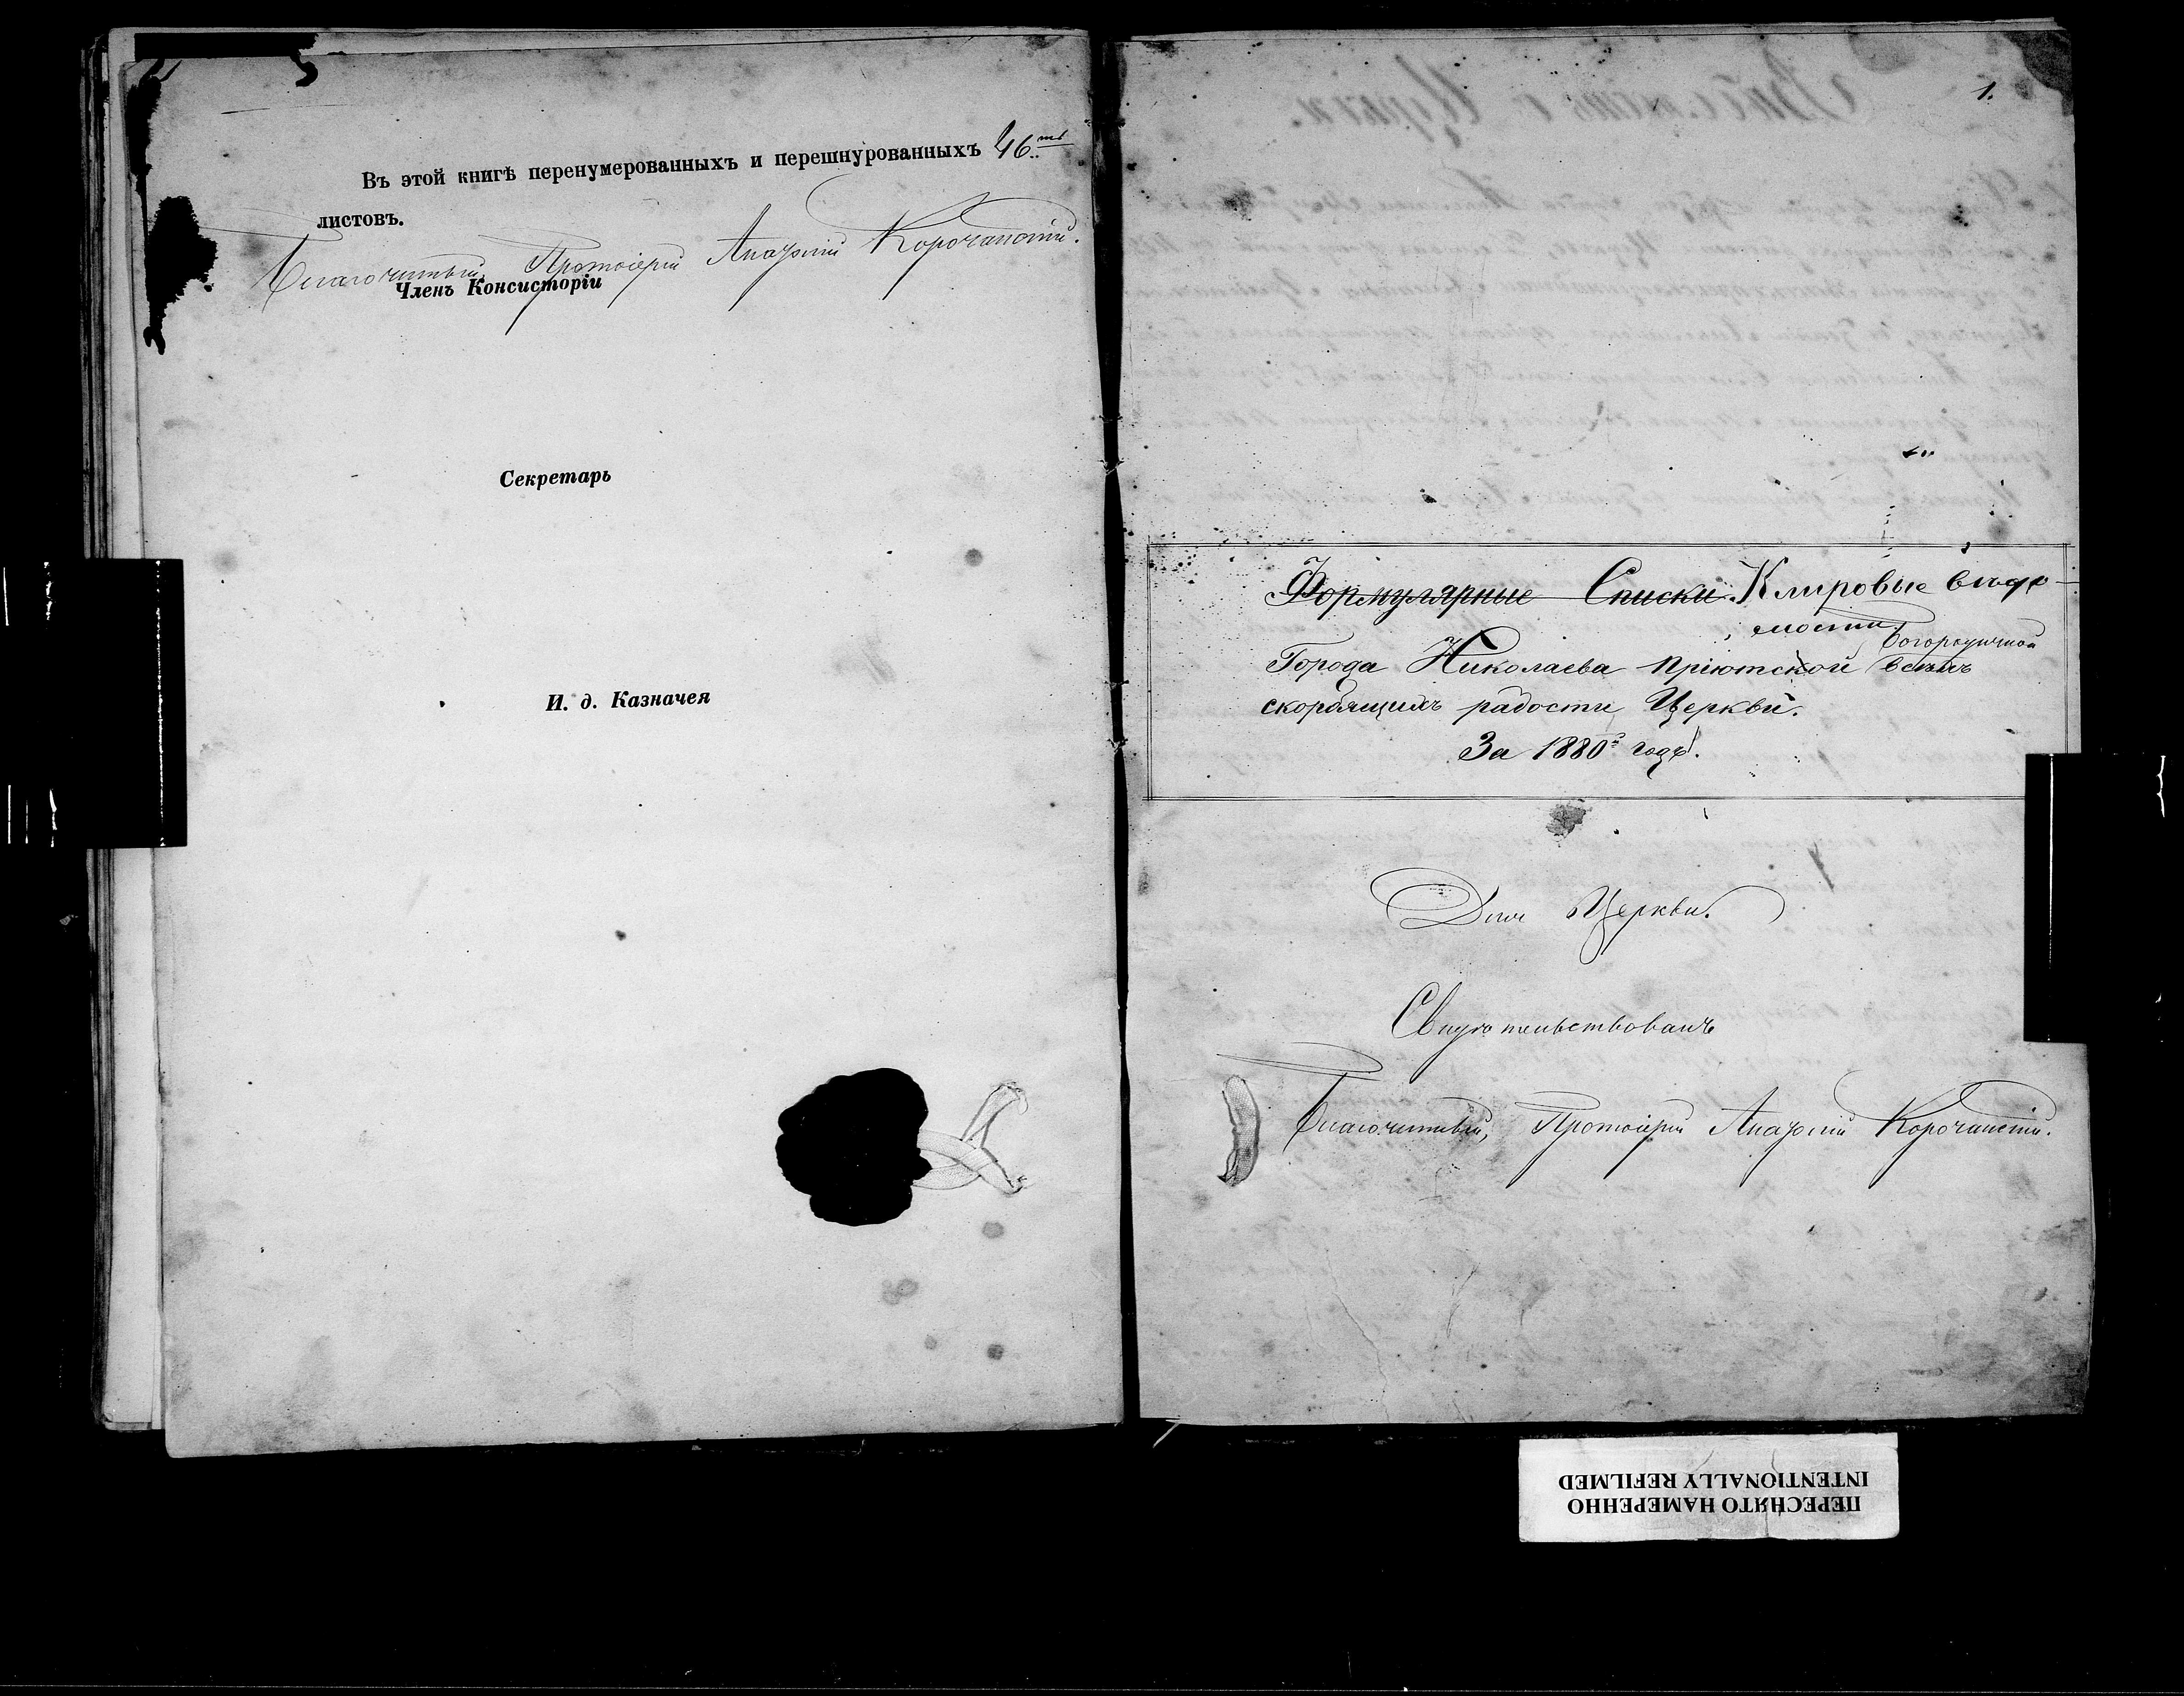 Въ этой книгѣ перенумерованныхъ и перешнурованныхъ 46ть
листовъ.
Благочинный, Протоіерей Корочанскій.
Членъ Консисторіи
Секретарь
И. д. Казначея
1.
Формулярные Списки Клировые вѣдо-
мости
Богородичной
Города Николаева Пріютской всѣхъ
скорбящихъ радости Церкви.
За 1880й годъ.
Для Церкви.
Свидѣтельствовалъ
Благочинный, Протоіерей Корочанскій.
ПЕРЕСНЯТО НАМЕРЕННО
INTENTIONALLY REFILMED